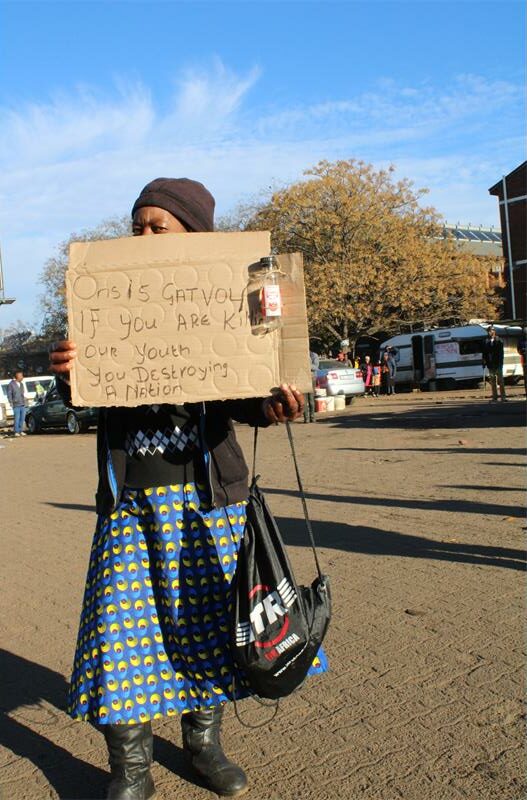 Ons is GATVOL
IF you ARE
our youth
you Destroying
A Nation
TFI
AFRICA